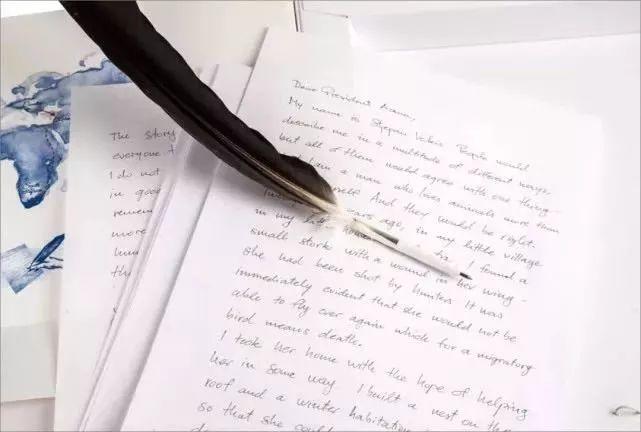 The story
everyone
I do not
in
more
Dear President Aoun,
My name is Stjepan Vokić. People would
describe me in a multitude of different ways,
but all of them would agree with one thing -
I am a man who loves animals more than
And they would be right.
years ago, in my little village
in my I found a
small stork with a wound in her wing -
she had been shot by hunters. It was
immediately evident that she would not be
able to fly ever again which for a migratory
bird means death.
I took her home with the hope of helping
her in some way. I built a nest on the
roof and a winter habitation
so that she could